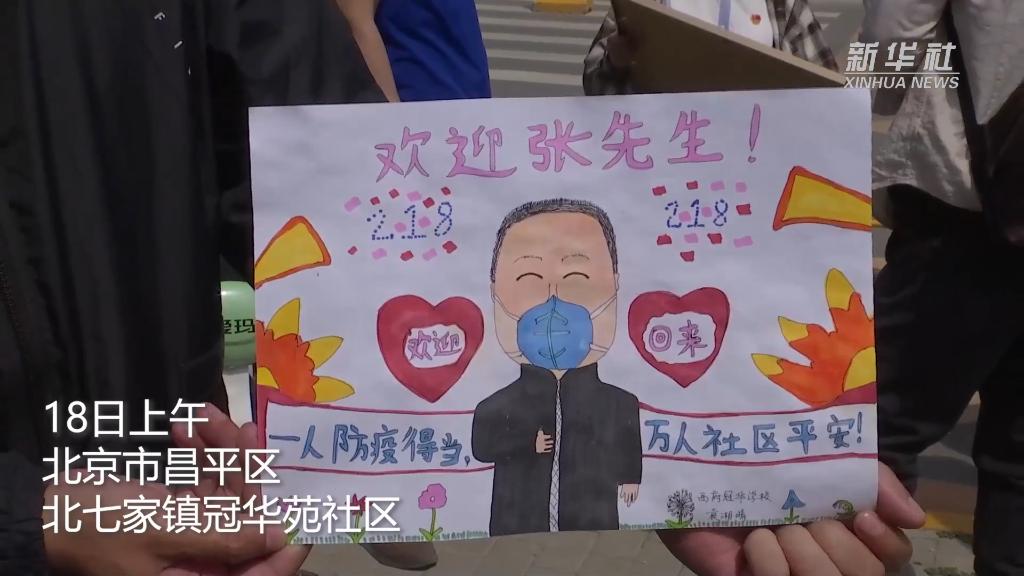 新华社
XINHUA NEWS
欢迎张先生！
2.1.8
218
欢迎
回来
爱玛
一人防疫得当，万人社区平安！
西府冠华学校
18日上午
北京市昌平区
北七家镇冠华苑社区